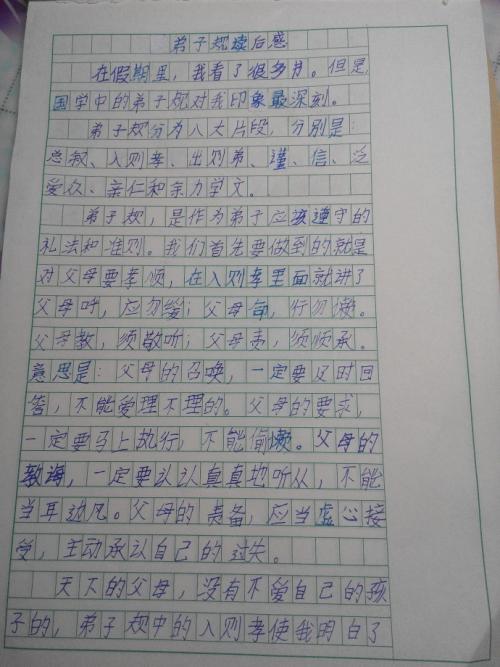 弟子规读后感
在假期里，我看了很多书。但是，
国学中的弟子规对我印象最深刻。
弟子规分为八大片段，分别是：
总叙、入则孝、出则弟、谨、信、泛
爱众、亲仁和余力学文。
弟子规，是作为弟子应该遵守的
礼法和准则。我们首先要做到的就是
对父母要孝顺，在入则孝里面就讲了
父母呼，应勿缓；父母命，行勿懒。
父母教，须敬听；父母责，须顺承。
意思是：父母的召唤，一定要及时回
答，不能爱理不理的。父母的要求，
一定要马上执行，不能偷懒。父母的
教诲，一定要认认真真地听从，不能
当耳边风。父母的责备，应当虚心接
受，主动承认自己的过失。
天下的父母，没有不爱自己的孩
子的，弟子规中的入则孝使我明白了